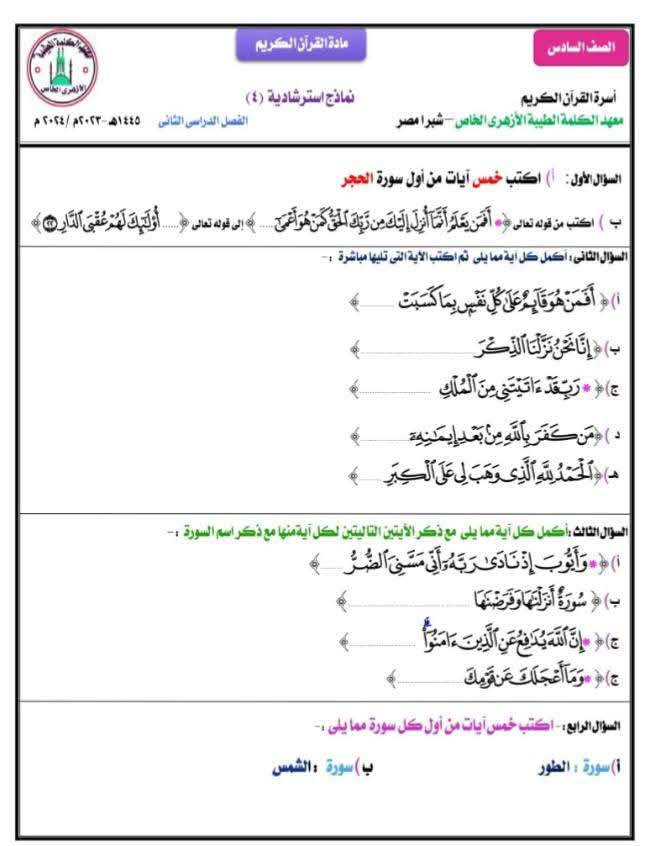 الصف السادس
مادة القرآن الكريم
معهد الكلمة الطيبة
الأزهرى الخاص
أسرة القرآن الكريم
نماذج استرشادية (٤)
معهد الكلمة الطيبة الأزهرى الخاص – شبرا مصر
الفصل الدراسى الثانى
١٤٤٥هـ - ٢٠٢٣م / ٢٠٢٤ م
السؤال الأول: أ) اكتب خمس آيات من أول سورة الحجر
ب ) اكتب من قوله تعالى ﴿ * أَفَمَن يَعْلَمُ أَنَّمَآ أُنزِلَ إِلَيْكَ مِن رَّبِّكَ ٱلْحَقُّ كَمَنْ هُوَ أَعْمَىٰٓ .... ﴾ إلى قوله تعالى ﴿ ..... أُوْلَٰٓئِكَ لَهُمْ عُقْبَى ٱلدَّارِ ٢٢ ﴾
السؤال الثانى : أكمل كل آية مما يلى ثم اكتب الآية التى تليها مباشرة :-
أ) ﴿ أَفَمَنْ هُوَ قَآئِمٌ عَلَىٰ كُلِّ نَفْسٍۭ بِمَا كَسَبَتْ .......... ﴾
ب) ﴿ إِنَّا نَحْنُ نَزَّلْنَا ٱلذِّكْرَ .......... ﴾
ج) ﴿ * رَبِّ قَدْ ءَاتَيْتَنِى مِنَ ٱلْمُلْكِ .......... ﴾
د ) ﴿ مَن كَفَرَ بِٱللَّهِ مِنۢ بَعْدِ إِيمَٰنِهِۦٓ .......... ﴾
هـ) ﴿ ٱلْحَمْدُ لِلَّهِ ٱلَّذِى وَهَبَ لِى عَلَى ٱلْكِبَرِ ..... ﴾
السؤال الثالث : أكمل كل آية مما يلى مع ذكر الآيتين التاليتين لكل آية منها مع ذكر اسم السورة :-
أ) ﴿ * وَأَيُّوبَ إِذْ نَادَىٰ رَبَّهُۥٓ أَنِّى مَسَّنِىَ ٱلضُّرُّ ..... ﴾
ب) ﴿ سُورَةٌ أَنزَلْنَٰهَا وَفَرَضْنَٰهَا .......... ﴾
ج) ﴿ * إِنَّ ٱللَّهَ يُدَٰفِعُ عَنِ ٱلَّذِينَ ءَامَنُوٓاْ .......... ﴾
ج) ﴿ * وَمَآ أَعْجَلَكَ عَن قَوْمِكَ .......... ﴾
السؤال الرابع :- اكتب خمس آيات من أول كل سورة مما يلى :-
أ) سورة : الطور
ب) سورة : الشمس